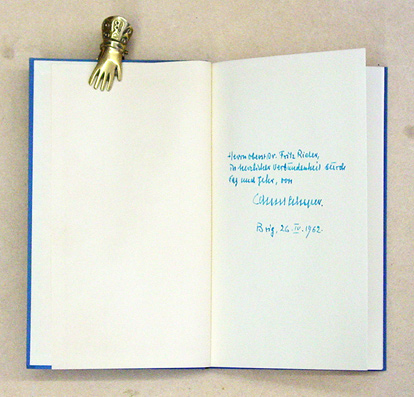 Herrn Oberst Dr. Fritz Rieter,
In herzlicher Verbundenheit durch
Tag und Jahr, von
Brig, 26. IV. 1962.